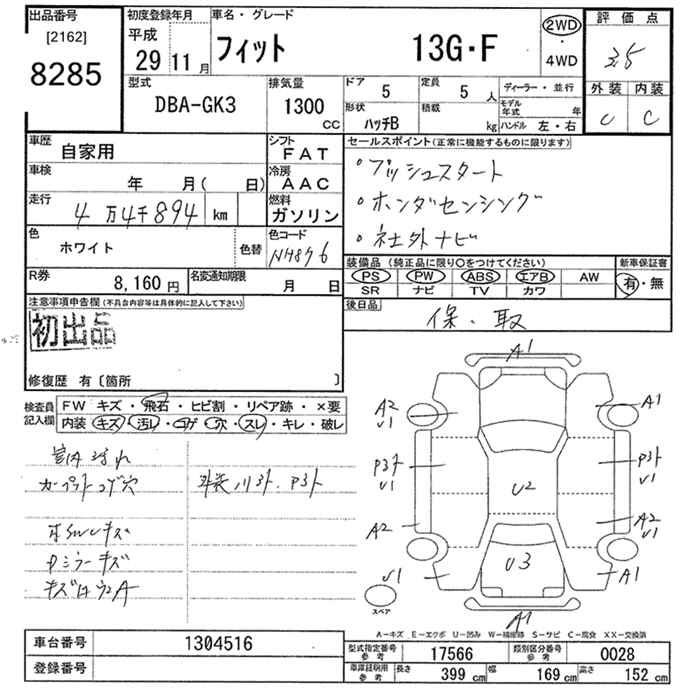 出品番号 初度登録年月 車名・グレード 評価点
[2162] 平成 2WD
8285 29年11月 フィット 13G・F 4WD 3.5
型式 排気量 ドア 5 定員 5人 ディーラー・並行 外装 内装
DBA-GK3 1300cc 形状 ハッチB 積載 kg モデル年式 年 C C
ハンドル 左・右
車歴 自家用 シフト FAT セールスポイント(正常に機能するものに限ります)
車検 年 月( 日) 冷房 AAC ・プッシュスタート
走行 4万4千894 km 燃料 ガソリン ・ホンダセンシング
色 ホワイト 色替 色コード NH876 ・社外ナビ
R券 8,160円 名変通知期限 月 日 装備品(純正品に限り○をつけてください) 新車保証書
PS PW ABS エアB AW 有・無
SR ナビ TV カワ
注意事項申告欄(不具合内容等は具体的に記入して下さい) 後日品
初出品 保・取
修復歴 有〔箇所 〕
検査員記入欄 FW キズ・飛石・ヒビ割・リペア跡・×要
内装 キズ・汚レ・コゲ・穴・スレ・キレ・破レ
室内汚れ
カーペットコゲ穴 外装小キズ、P3ト
キズ
Dミラーキズ
A1
A2 A1
U1
P3ト P3ト
U1 U2 U1
A2 A2
U1
U1 U3 A1
スペア A1
A-キズ E-エクボ U-凹み W-補修跡 S-サビ C-腐食 XX-交換済
車台番号 1304516 型式指定番号 参考 17566 類別区分番号 参考 0028
登録番号 車庫証明用 参考 長さ 399cm 幅 169cm 高さ 152cm